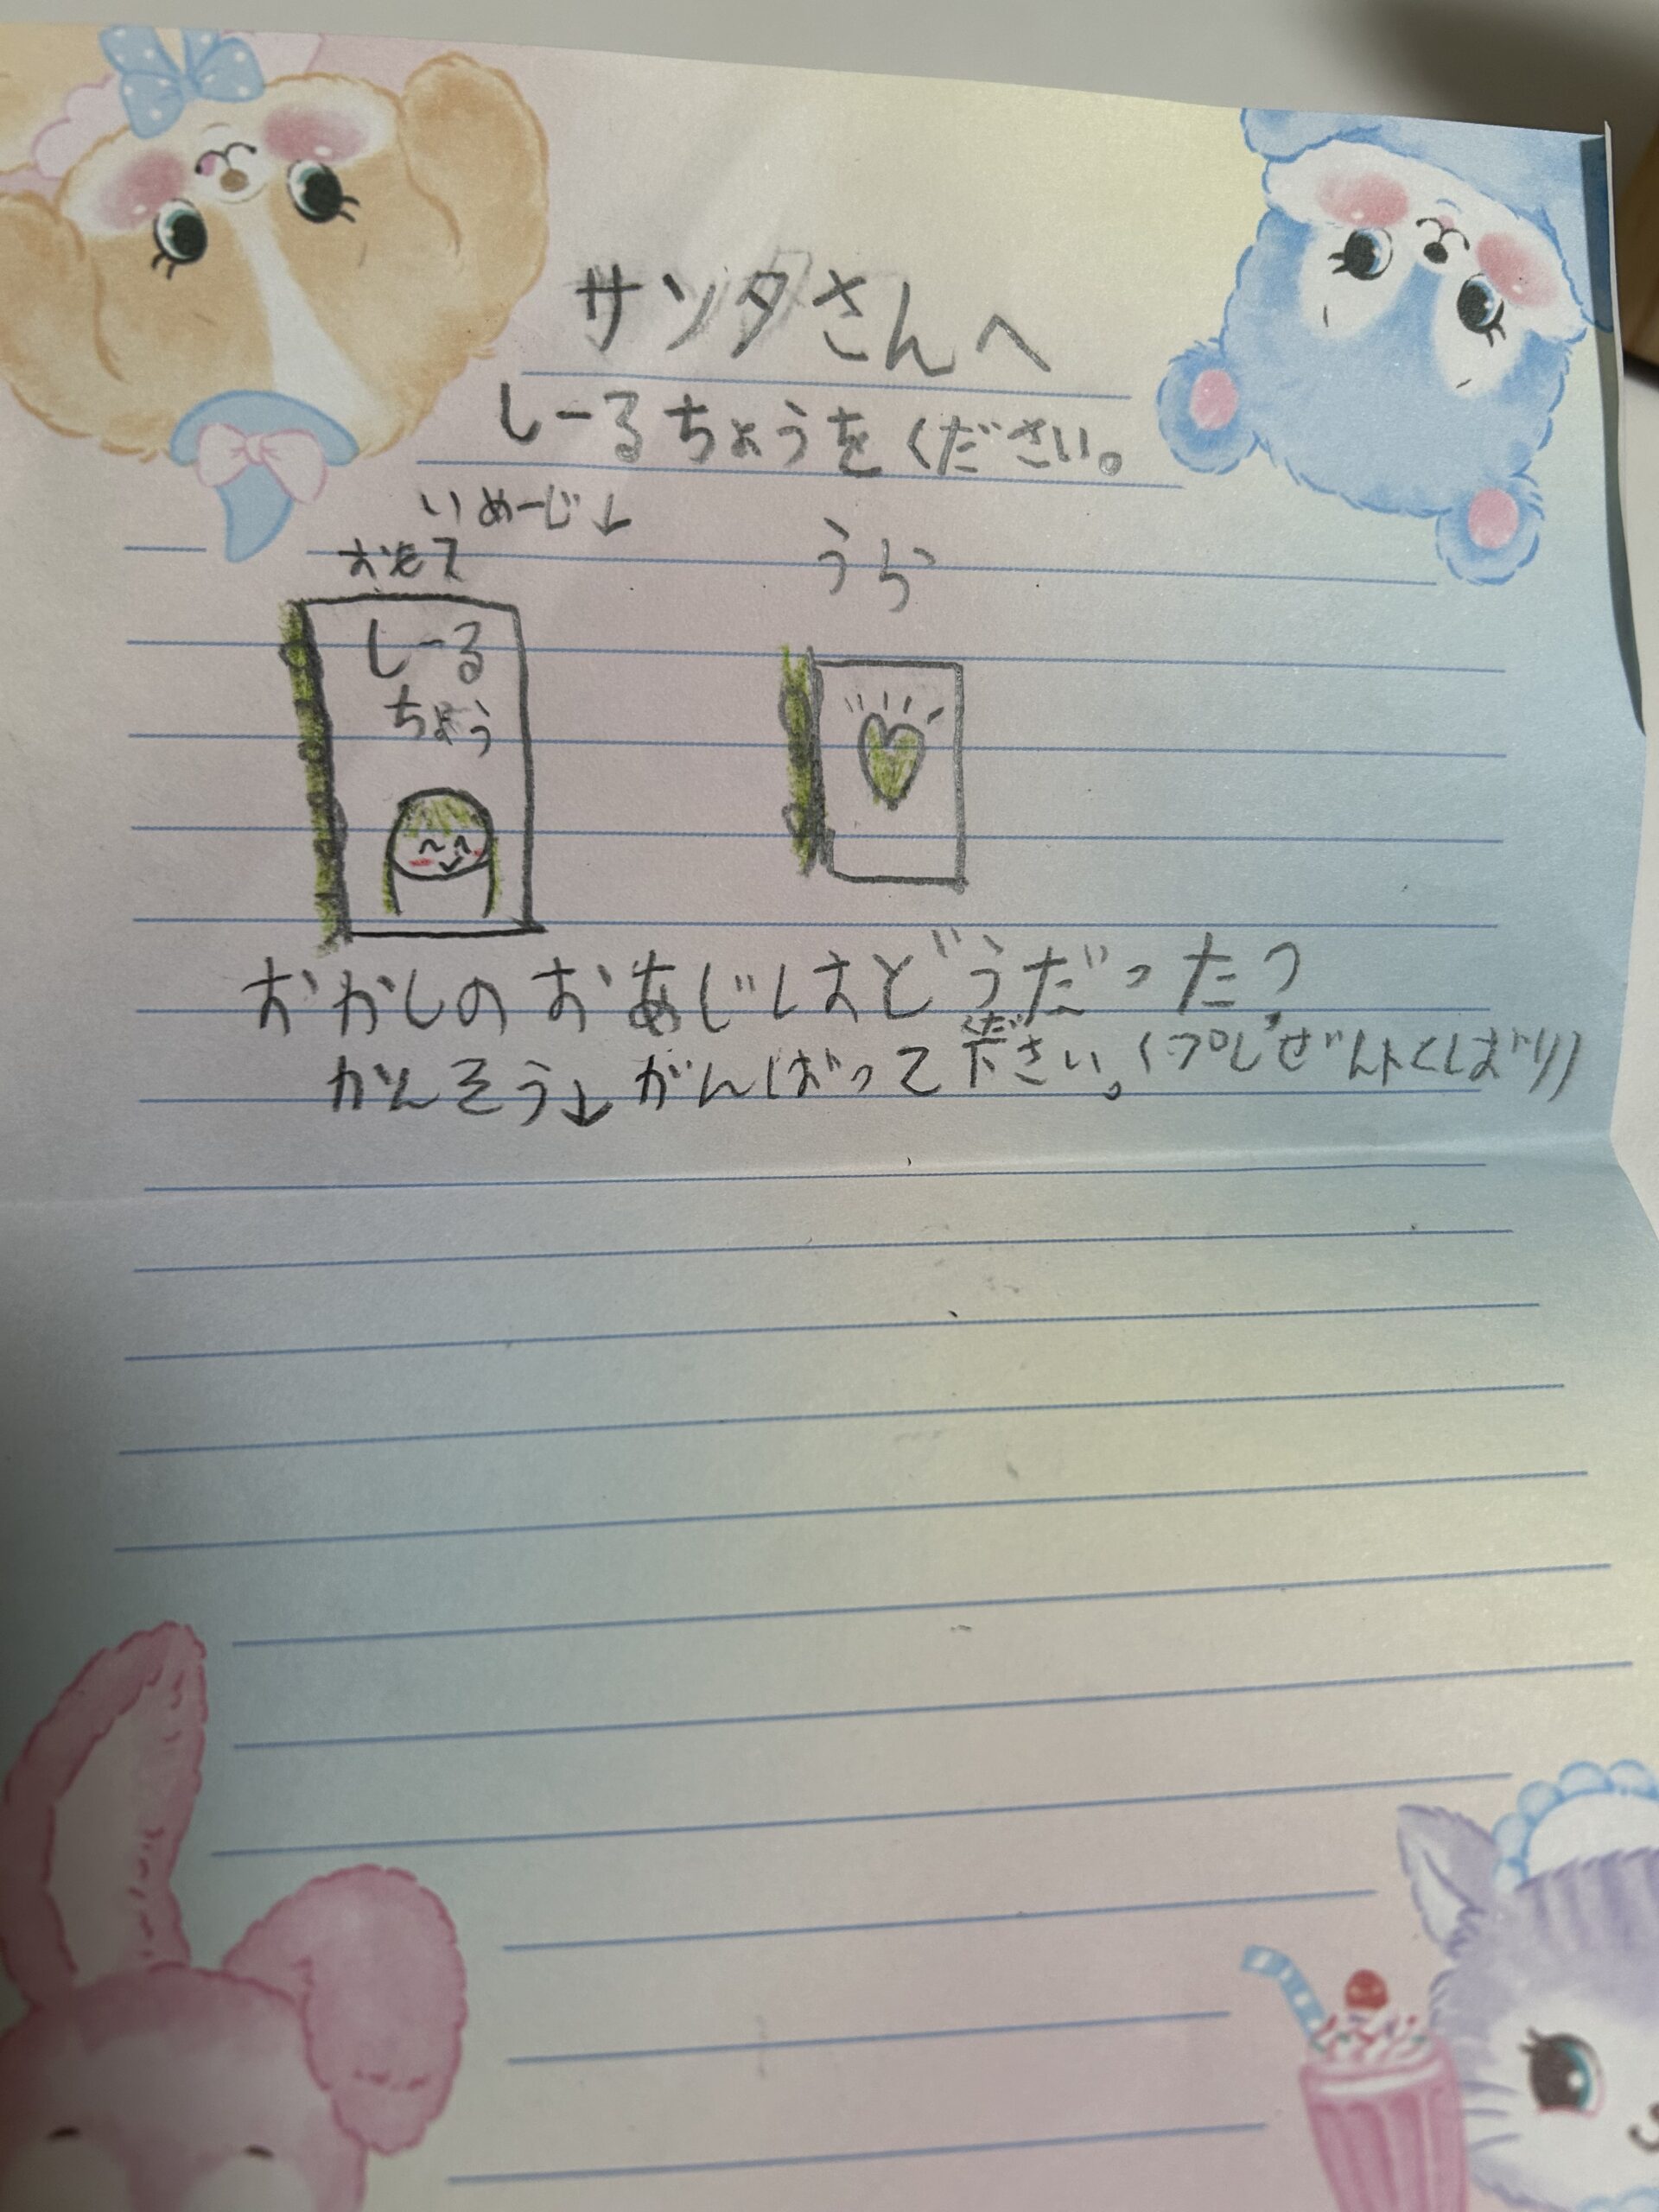 サンタさんへ
しーるちょうをください。
いめーじ↓
おもて
うら
しーる
ちょう
おかしのおあじはどうだった?
かんそう↓がんばって下さい。(プレぜントくばり)
くだ